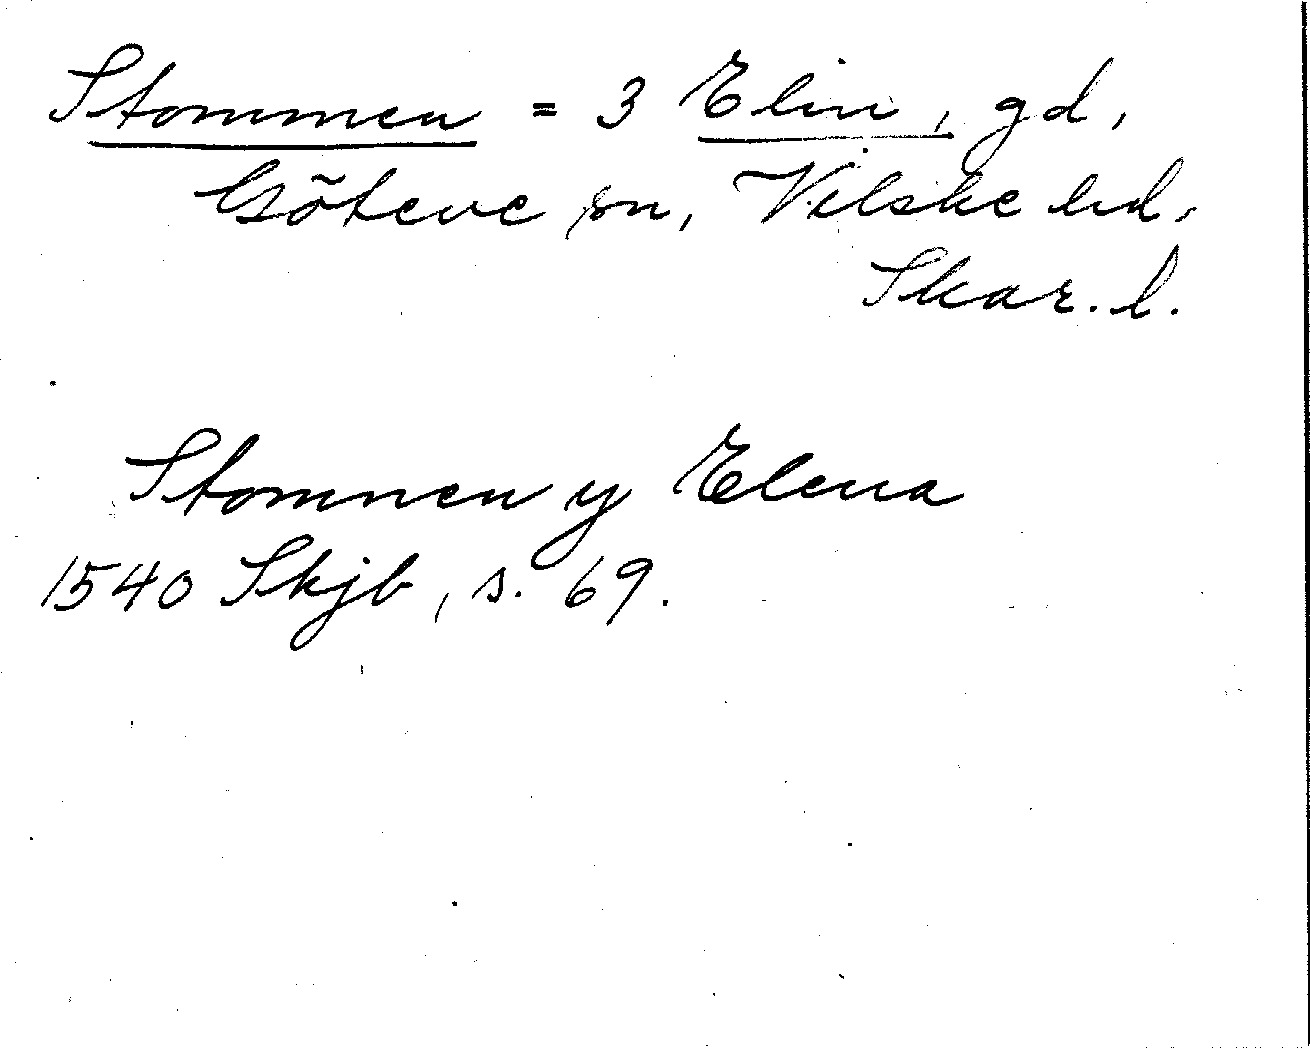 Stommen = 3 Elin, gd,
Göteve sn, Vilske hd,
Skar. l.
Stomnen y Elena
1540 Skjb, s. 69.